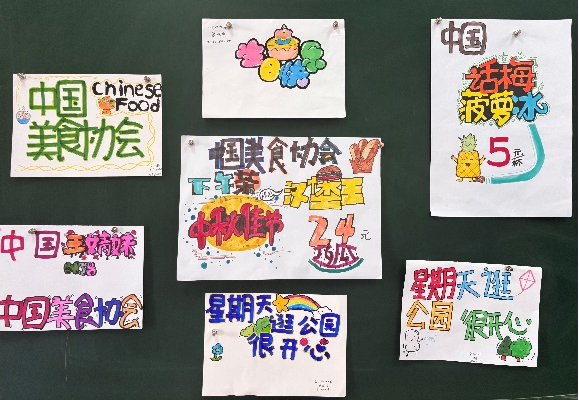 生日快乐
中国
话梅
菠萝冰
5元/杯
中国
美食协会
Chinese
Food
中国美食协会
下午茶
汉堡王
中秋佳节
24元
西瓜
中国
中国美食协会
星期天
逛公园
很开心
星期天逛
公园
很开心